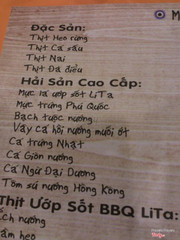 M
Đặc Sản:
Thịt Heo rừng
Thịt Cá sấu
Thịt Nai
Thịt Đà điểu
Hải Sản Cao Cấp:
Mực lá ướp sốt LiTa
Mực trứng Phú Quốc
Bạch tuộc nướng
Vây cá hồi nướng muối ớt
Cá trứng Nhật
Cá Giòn nướng
Cá Ngừ Đại Dương
Tôm sú nướng Hồng Kông
Thịt Ướp Sốt BBQ LiTa:
Ếch nướng
heo